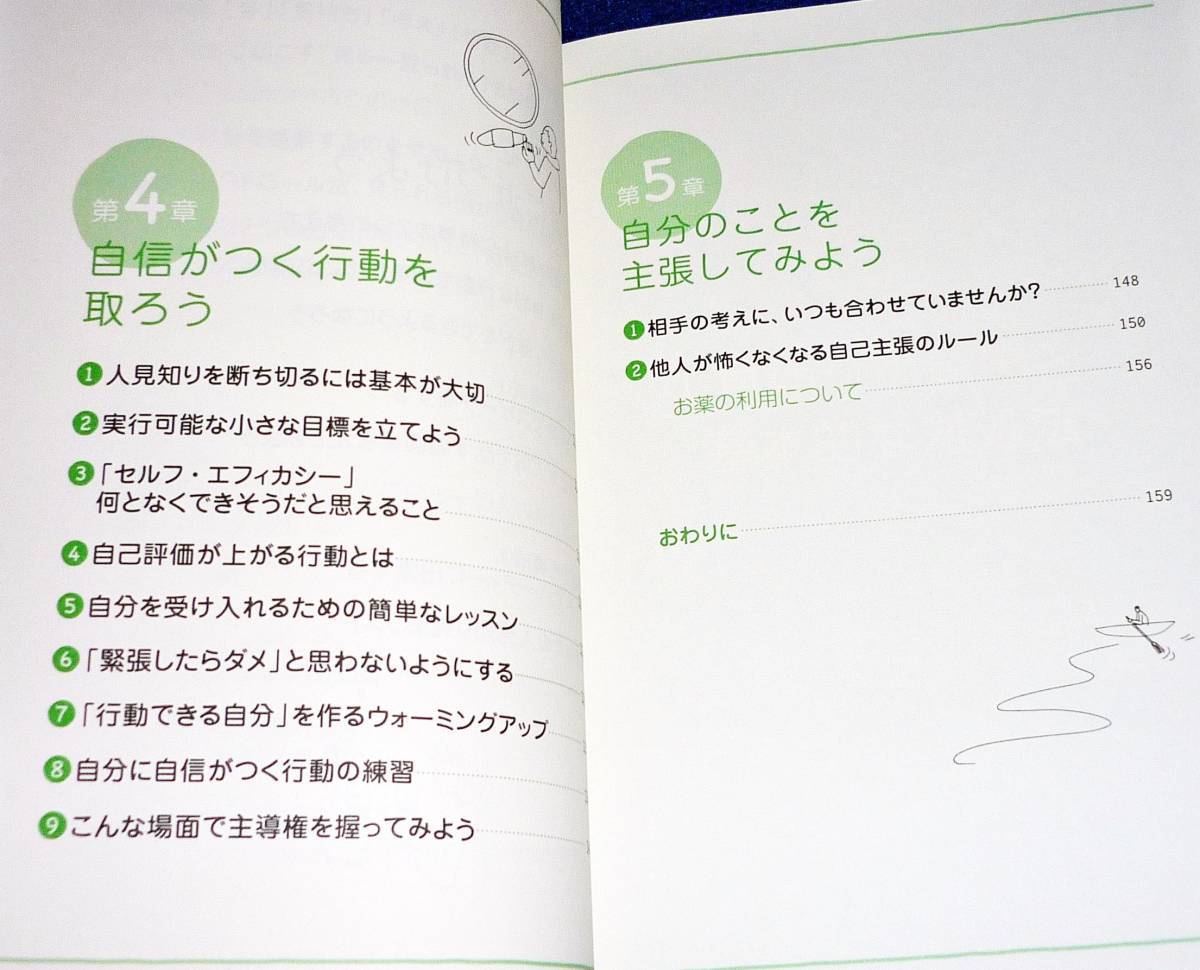 第4章
自信がつく行動を
取ろう
❶人見知りを断ち切るには基本が大切
❷実行可能な小さな目標を立てよう
❸「セルフ・エフィカシー」
何となくできそうだと思えること
❹自己評価が上がる行動とは
❺自分を受け入れるための簡単なレッスン
❻「緊張したらダメ」と思わないようにする
❼「行動できる自分」を作るウォーミングアップ
❽自分に自信がつく行動の練習
❾こんな場面で主導権を握ってみよう
第5章
自分のことを
主張してみよう
❶相手の考えに、いつも合わせていませんか? 148
❷他人が怖くなくなる自己主張のルール 150
お薬の利用について 156
おわりに 159